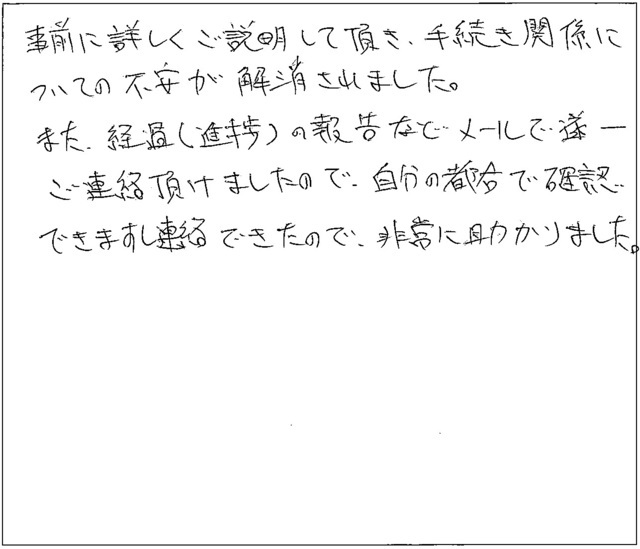 事前に詳しくご説明して頂き、手続き関係に
ついての不安が解消されました。
また、経過(進捗)の報告などメールで遂一
ご連絡頂けましたので、自分の都合で確認
できますし連絡できたので、非常に助かりました。